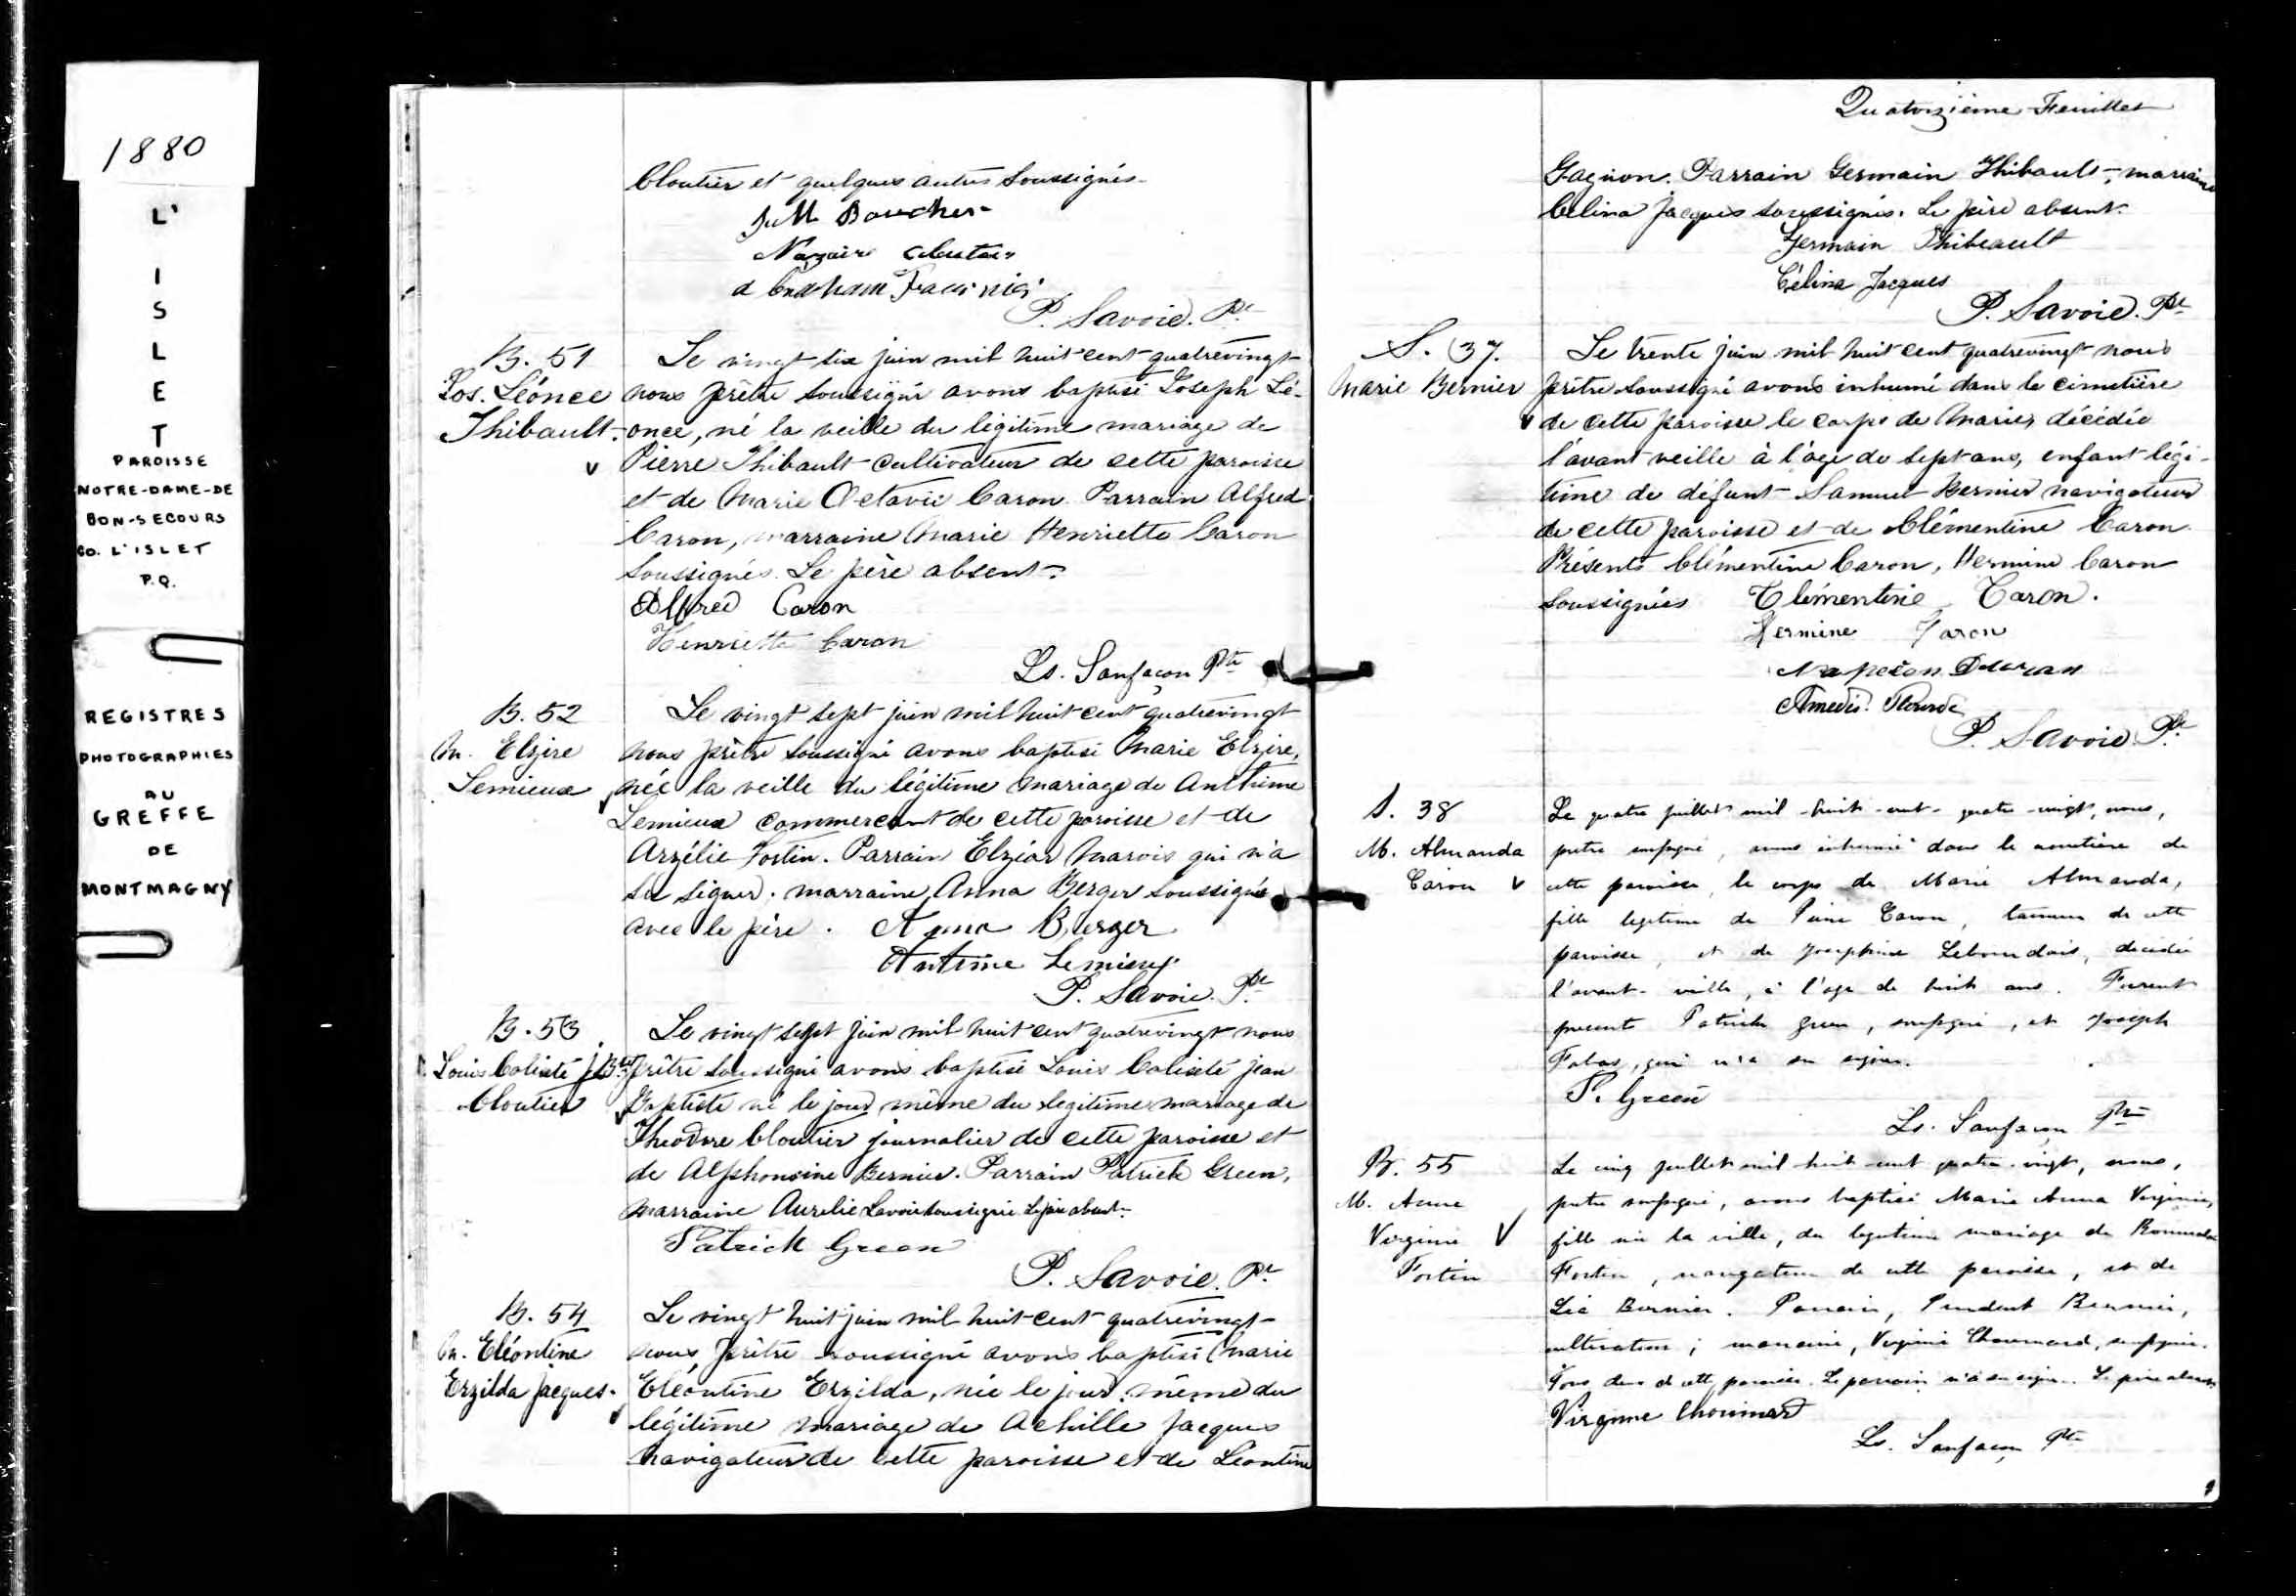 1880
L'
I
S
L
E
T
PAROISSE
NOTRE-DAME-DE
BON-SECOURS
Co. L'ISLET
P.Q.
REGISTRES
PHOTOGRAPHIES
AU
GREFFE
DE
MONTMAGNY
Cloutier et quelques autres soussignés.
Nazaire
P. Savoie. Ptr
B. 51
Jos. Léonce
Thibault.
Le vingt six juin mil huit cent quatrevingt
nous prêtre soussigné avons baptisé Joseph Lé-
once, né la veille du légitime mariage de
Pierre Thibault cultivateur de cette paroisse
et de Marie Octavie Caron. Parrain Alfred
Caron, marraine Marie Henriette Caron
soussignés. Le père absent.
Alfred Caron
Henriette Caron
Ls. Sanfaçon Ptre
B. 52
M. Elzire
Lemieux
Le vingt sept juin mil huit cent quatrevingt
nous prêtre soussigné avons baptisé Marie Elzire,
née la veille du légitime mariage de Anthime
Lemieux commercant de cette paroisse et de
Arzélie Fortin. Parrain Elzéar Marois qui n'a
su signer. marraine Anna Berger soussignée
avec le père. Anna Berger
Antime Lemieux
P. Savoie. Ptr
B. 53
Louis Calixte J. Bte
Cloutier
Le vingt sept juin mil huit cent quatrevingt nous
prêtre soussigné avons baptisé Louis Calixte jean
Baptiste né le jour même du legitime mariage de
Theodore Cloutier journalier de cette paroisse et
de Alphonsine Bernier. Parrain Patrick Green,
marraine Aurelie Lavoie soussignée Le père absent.
Patrick Green
P. Savoie. Ptr
B. 54
M. Eléontine
Erzilda Jacques.
Le vingt huit juin mil huit cent quatrevingt
nous, prêtre soussigné avons baptisé Marie
Eléontine Erzilda, née le jour même du
légitime mariage de Achille Jacques
navigateur de cette paroisse et de Léontine
Quatorzième Feuillet
Gagnon. Parrain Germain Thibault, marraine
Celina Jacques soussignés. Le père absent.
Germain Thibeault
Célina Jacques
P. Savoie. Ptr
S. 37.
Marie Bernier
Le trente juin mil huit cent quatrevingt nous
prêtre soussigné avons inhumé dans le cimetière
de cette paroisse le corps de Marie, décédée
l'avant veille à l'age de sept ans, enfant légi-
time de défunt Samuel Bernier navigateur
de cette paroisse et de Clémentine Caron.
Présents Clémentine Caron, Hermine Caron
soussignées Clémentine Caron.
Hermine Caron
Amedé
P. Savoie Ptr
S. 38
M. Almanda
Caron
Le quatre juillet mil-huit-cent-quatre-vingt, nous,
prêtre soussigné, avons inhumé dans le cimetière de
cette paroisse, le corps de Marie Almanda,
fille legitime de Pierre Caron, tanneur de cette
paroisse, et de Josephine Lebourdais, decédée
l'avant-veille, à l'age de huit ans. Furent
present Patrick Green, soussigné, et Joseph
qui n'a su signer.
P. Green
Ls. Sanfaçon Ptre
B. 55
M. Anna
Virginie
Fortin
Le cinq juillet mil huit cent quatre-vingt, nous,
prêtre soussigné, avons baptisé Marie Anna Virginie,
fille née la veille, du legitime mariage de Romuald
Fortin, navigateur de cette paroisse, et de
Léa Bernier. Parrain, Prudent Bernier,
cultivateur; marraine, Virginie Chouinard, soussignée.
Tous deux de cette paroisse. Le parrain n'a su signer. Le père absent
Virginie Chouinard
Ls. Sanfaçon Ptre